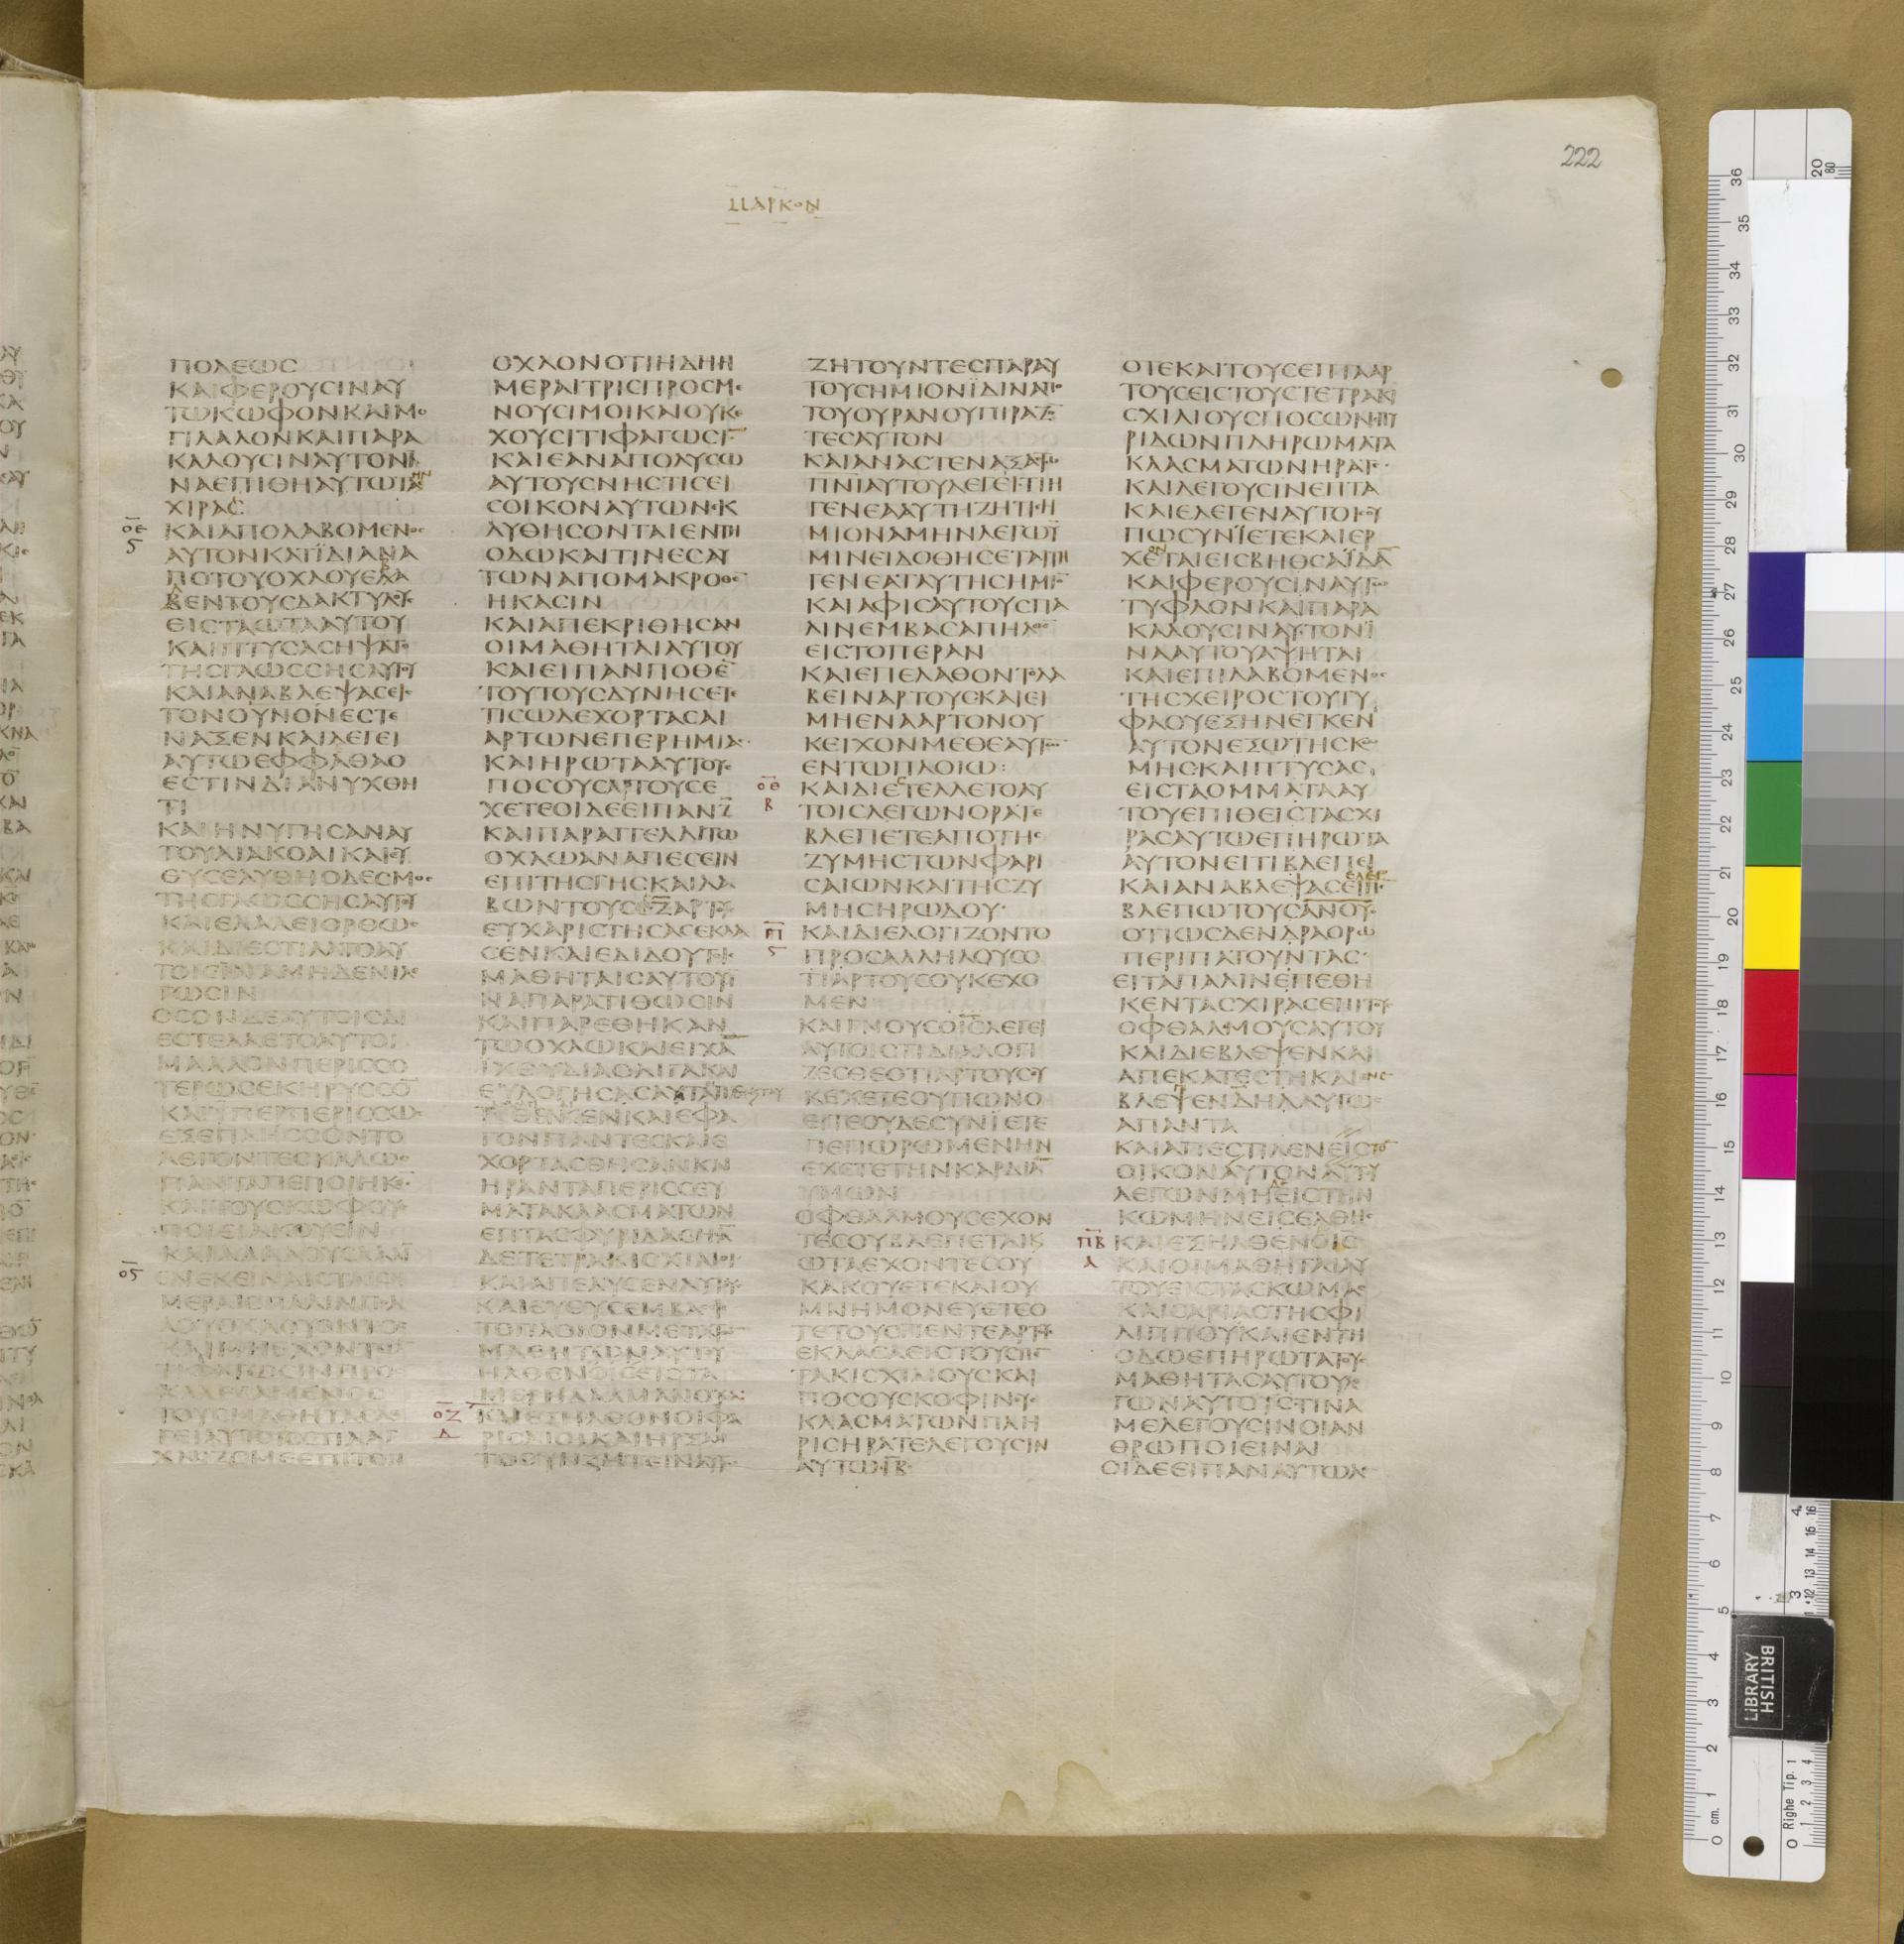 222
ΜΑΡΚΟΝ
ΠΟΛΕΩϹ
ΚΑΙΦΕΡΟΥϹΙΝΑΥ
ΤΩΚΩΦΟΝΚΑΙΜΟ
ΓΙΛΑΛΟΝΚΑΙΠΑΡΑ
ΚΑΛΟΥϹΙΝΑΥΤΟΝΙ
ΝΑΕΠΙΘΗΑΥΤΩ
ΧΙΡΑϹ
ΟΕ ΚΑΙΑΠΟΛΑΒΟΜΕΝΟϹ
Ϛ ΑΥΤΟΝΚΑΤΪΔΙΑΝΑ
ΠΟΤΟΥΟΧΛΟΥΕΒΑ
ΛΕΝΤΟΥϹΔΑΚΤΥΛΟΥ
ΕΙϹΤΑΩΤΑΑΥΤΟΥ
ΚΑΙΠΤΥϹΑϹΗΨΑΤΟ
ΤΗϹΓΛΩϹϹΗϹΑΥΤΟΥ
ΚΑΙΑΝΑΒΛΕΨΑϹΕΙϹ
ΤΟΝΟΥΝΟΝΕϹΤΕ
ΝΑΞΕΝΚΑΙΛΕΓΕΙ
ΑΥΤΩΕΦΦΑΘΑΟ
ΕϹΤΙΝΔΙΑΝΥΧΘΗ
ΤΙ
ΚΑΙΗΝΥΓΗϹΑΝΑΥ
ΤΟΥΑΙΑΚΟΑΙΚΑΙΕΥ
ΘΥϹΕΛΥΘΗΟΔΕϹΜΟϹ
ΤΗϹΓΛΩϹϹΗϹΑΥΤΟΥ
ΚΑΙΕΛΑΛΕΙΟΡΘΩϹ
ΚΑΙΔΙΕϹΤΙΛΑΤΟΑΥ
ΤΟΙϹΪΝΑΜΗΔΕΝΙΛΕ
ΓΩϹΙΝ
ΟϹΟΝΔΕΑΥΤΟΙϹΔΙ
ΕϹΤΕΛΛΕΤΟΑΥΤΟΙ
ΜΑΛΛΟΝΠΕΡΙϹϹΟ
ΤΕΡΩϹΕΚΗΡΥϹϹΟΝ
ΚΑΙΥΠΕΡΠΕΡΙϹϹΩϹ
ΕΞΕΠΛΗϹϹΟΝΤΟ
ΛΕΓΟΝΤΕϹΚΑΛΩϹ
ΠΑΝΤΑΠΕΠΟΙΗΚΕ
ΚΑΙΤΟΥϹΚΩΦΟΥϹ
ΠΟΙΕΙΑΚΟΥΕΙΝ
ΚΑΙΑΛΑΛΟΥϹΛΑΛΙ
ΟϚ ΕΝΕΚΕΙΝΑΙϹΤΑΙϹΗ
ΜΕΡΑΙϹΠΑΛΙΝΠΟΛ
ΛΟΥΟΧΛΟΥΟΝΤΟϹ
ΚΑΙΜΗΕΧΟΝΤΩΝ
ΤΙΦΑΓΩϹΙΝΠΡΟϹ
ΚΑΛΕϹΑΜΕΝΟϹ
ΤΟΥϹΜΑΘΗΤΑϹΛΕ
ΓΕΙΑΥΤΟΙϹϹΠΛΑΓ
ΧΝΙΖΟΜΕΕΠΙΤΟΝ
ΟΧΛΟΝΟΤΙΗΔΗΗ
ΜΕΡΑΙΤΡΙϹΠΡΟϹΜΕ
ΝΟΥϹΙΜΟΙΚΑΙΟΥΚΕ
ΧΟΥϹΙΤΙΦΑΓΩϹΙΝ
ΚΑΙΕΑΝΑΠΟΛΥϹΩ
ΑΥΤΟΥϹΝΗϹΤΙϹΕΙ
ϹΟΙΚΟΝΑΥΤΩΝΕΚ
ΛΥΘΗϹΟΝΤΑΙΕΝΤΗ
ΟΔΩΚΑΙΤΙΝΕϹΑΥ
ΤΩΝΑΠΟΜΑΚΡΟΘΕ
ΗΚΑϹΙΝ
ΚΑΙΑΠΕΚΡΙΘΗϹΑΝ
ΟΙΜΑΘΗΤΑΙΑΥΤΟΥ
ΚΑΙΕΙΠΑΝΠΟΘΕ̅
ΤΟΥΤΟΥϹΔΥΝΗϹΕΤΕ
ΤΙϹΩΔΕΧΟΡΤΑϹΑΙ
ΑΡΤΩΝΕΠΕΡΗΜΙΑϹ
ΚΑΙΗΡΩΤΑΑΥΤΟΥϹ
ΠΟϹΟΥϹΑΡΤΟΥϹΕ
ΧΕΤΕΟΙΔΕΕΙΠΑΝΖ̅
ΚΑΙΠΑΡΑΓΓΕΛΛΙΤΩ
ΟΧΛΩΑΝΑΠΕϹΕΙΝ
ΕΠΙΤΗϹΓΗϹΚΑΙΛΑ
ΒΩΝΤΟΥϹΖ̅ΑΡΤΟΥϹ
ΕΥΧΑΡΙϹΤΗϹΑϹΕΚΛΑ
ϹΕΝΚΑΙΕΔΙΔΟΥΤΟΙϹ
ΜΑΘΗΤΑΙϹΑΥΤΟΥΪ
ΝΑΠΑΡΑΤΙΘΩϹΙΝ
ΚΑΙΠΑΡΕΘΗΚΑΝ
ΤΩΟΧΛΩΚΑΙΕΙΧΑ̅
ΪΧΘΥΔΙΑΟΛΙΓΑΚΑΙ
ΕΥΛΟΓΗϹΑϹΑΥΤΑ
ΚΕΝΚΑΙΕΦΑ
ΓΟΝΠΑΝΤΕϹΚΑΙΕ
ΧΟΡΤΑϹΘΗϹΑΝΚΑΙ
ΗΡΑΝΤΑΠΕΡΙϹϹΕΥ
ΜΑΤΑΚΛΑϹΜΑΤΩΝ
ΕΠΤΑϹΦΥΡΙΔΑϹΗϹΑ̅
ΔΕΤΕΤΡΑΚΙϹΧΙΛΙΟΙ
ΚΑΙΑΠΕΛΥϹΕΝΑΥΤΟΥϹ
ΚΑΙΕΥΘΥϹΕΜΒΑϹΕΙϹ
ΤΟΠΛΟΙΟΝΜΕΤΑΤΩΝ
ΜΑΘΗΤΩΝΑΥΤΟΥ
ΗΛΘΕΝΟΙ̅Ϲ̅ΕΙϹΤΑ
ΜΕΡΗΔΑΛΜΑΝΟΥΘΑ
ΟΖ ΚΑΙΕΞΗΛΘΟΝΟΙΦΑ
Δ ΡΙϹΑΙΟΙΚΑΙΗΡΞΑΝ
ΤΟϹΥΝΖΗΤΕΙΝΑΥΤΩ
ΖΗΤΟΥΝΤΕϹΠΑΡΑΥ
ΤΟΥϹΗΜΙΟΝΪΔΙΝΑΠΟ
ΤΟΥΟΥΡΑΝΟΥΠΙΡΑΖΟΝ
ΤΕϹΑΥΤΟΝ
ΚΑΙΑΝΑϹΤΕΝΑΞΑϹΤΩ
ΠΝ̅Ι̅ΑΥΤΟΥΛΕΓΕΙΤΙΗ
ΓΕΝΕΑΑΥΤΗΖΗΤΙϹΗ
ΜΙΟΝΑΜΗΝΛΕΓΩΫ
ΜΙΝΕΙΔΟΘΗϹΕΤΑΙΤΗ
ΓΕΝΕΑΤΑΥΤΗϹΗΜΙΟΝ
ΚΑΙΑΦΙϹΑΥΤΟΥϹΠΑ
ΛΙΝΕΜΒΑϹΑΠΗΛΘΕ
ΕΙϹΤΟΠΕΡΑΝ
ΚΑΙΕΠΕΛΑΘΟΝΤΟΛΑ
ΒΕΙΝΑΡΤΟΥϹΚΑΙΕΙ
ΜΗΕΝΑΑΡΤΟΝΟΥ
ΚΕΙΧΟΝΜΕΘΕΑΥΤΩΝ
ΕΝΤΩΠΛΟΙΩ:
ΟΘ ΚΑΙΔΙΕϹΤΕΛΛΕΤΟΑΥ
Β ΤΟΙϹΛΕΓΩΝΟΡΑΤΕ
ΒΛΕΠΕΤΕΑΠΟΤΗϹ
ΖΥΜΗϹΤΩΝΦΑΡΙ
ϹΑΙΩΝΚΑΙΤΗϹΖΥ
ΜΗϹΗΡΩΔΟΥ
Π ΚΑΙΔΙΕΛΟΓΙΖΟΝΤΟ
Ϛ ΠΡΟϹΑΛΛΗΛΟΥϹΟ
ΤΙΑΡΤΟΥϹΟΥΚΕΧΟ
ΜΕΝ
ΚΑΙΓΝΟΥϹΟΙ̅Ϲ̅ΛΕΓΕΙ
ΑΥΤΟΙϹΤΙΔΙΑΛΟΓΙ
ΖΕϹΘΕΟΤΙΑΡΤΟΥϹΟΥ
ΚΕΧΕΤΕΟΥΠΩΝΟ
ΕΙΤΕΟΥΔΕϹΥΝΪΕΤΕ
ΠΕΠΩΡΩΜΕΝΗΝ
ΕΧΕΤΕΤΗΝΚΑΡΔΙΑ̅
ΫΜΩΝ
ΟΦΘΑΛΜΟΥϹΕΧΟΝ
ΤΕϹΟΥΒΛΕΠΕΤΑΙΚ
ΩΤΑΕΧΟΝΤΕϹΟΥ
ΚΑΚΟΥΕΤΕΚΑΙΟΥ
ΜΝΗΜΟΝΕΥΕΤΕΟ
ΤΕΤΟΥϹΠΕΝΤΕΑΡΤΟΥϹ
ΕΚΛΑϹΑΕΙϹΤΟΥϹΠΕΝ
ΤΑΚΙϹΧΙΛΙΟΥϹΚΑΙ
ΠΟϹΟΥϹΚΟΦΙΝΟΥϹ
ΚΛΑϹΜΑΤΩΝΠΛΗ
ΡΙϹΗΡΑΤΕΛΕΓΟΥϹΙΝ
ΑΥΤΩΙΒ̅
ΟΤΕΚΑΙΤΟΥϹΕΠΤΑΑΡ
ΤΟΥϹΕΙϹΤΟΥϹΤΕΤΡΑΚΙ
ϹΧΙΛΙΟΥϹΠΟϹΩΝϹΠΥ
ΡΙΔΩΝΠΛΗΡΩΜΑΤΑ
ΚΛΑϹΜΑΤΩΝΗΡΑΤΕ
ΚΑΙΛΕΓΟΥϹΙΝΕΠΤΑ
ΚΑΙΕΛΕΓΕΝΑΥΤΟΙϹΟΥ
ΠΩϹΥΝΪΕΤΕΚΑΙΕΡ
ΧΕΤΑΙΕΙϹΒΗΘϹΑΪΔΑ̅
ΚΑΙΦΕΡΟΥϹΙΝΑΥΤΩ
ΤΥΦΛΟΝΚΑΙΠΑΡΑ
ΚΑΛΟΥϹΙΝΑΥΤΟΝΪ
ΝΑΑΥΤΟΥΑΨΗΤΑΙ
ΚΑΙΕΠΙΛΑΒΟΜΕΝΟϹ
ΤΗϹΧΕΙΡΟϹΤΟΥΤΥ
ΦΛΟΥΕΞΗΝΕΓΚΕΝ
ΑΥΤΟΝΕΞΩΤΗϹΚΩ
ΜΗϹΚΑΙΠΤΥϹΑϹ
ΕΙϹΤΑΟΜΜΑΤΑΑΥ
ΤΟΥΕΠΙΘΕΙϹΤΑϹΧΙ
ΡΑϹΑΥΤΩΕΠΗΡΩΤΑ
ΑΥΤΟΝΕΙΤΙΒΛΕΠΕΙ
ΚΑΙΑΝΑΒΛΕΨΑϹΕΙΠΕ
ΒΛΕΠΩΤΟΥϹΑΝ̅ΟΥϹ
ΟΤΙΩϹΔΕΝΔΡΑΟΡΩ
ΠΕΡΙΠΑΤΟΥΝΤΑϹ
ΕΙΤΑΠΑΛΙΝΕΠΕΘΗ
ΚΕΝΤΑϹΧΙΡΑϹΕΠΙΤΟΥϹ
ΟΦΘΑΛΜΟΥϹΑΥΤΟΥ
ΚΑΙΔΙΕΒΛΕΨΕΝΚΑΙ
ΑΠΕΚΑΤΕϹΤΗΚΑΙΕΝΕ
ΒΛΕΨΕΝΔΗΛΑΥΓΩϹ
ΑΠΑΝΤΑ
ΚΑΙΑΠΕϹΤΙΛΕΝΕΙϹ
ΟΙΚΟΝΑΥΤΟΝΑΥΤΟΥ
ΛΕΓΩΝΜΗΕΙϹΤΗΝ
ΚΩΜΗΝΕΙϹΕΛΘΗϹ
ΠΒ ΚΑΙΕΞΗΛΘΕΝΟΙ̅Ϲ̅
Α ΚΑΙΟΙΜΑΘΗΤΑΙΑΥ
ΤΟΥΕΙϹΤΑϹΚΩΜΑϹ
ΚΑΙϹΑΡΙΑϹΤΗϹΦΙ
ΛΙΠΠΟΥΚΑΙΕΝΤΗ
ΟΔΩΕΠΗΡΩΤΑΤΟΥϹ
ΜΑΘΗΤΑϹΑΥΤΟΥΛΕ
ΓΩΝΑΥΤΟΙϹΤΙΝΑ
ΜΕΛΕΓΟΥϹΙΝΟΙΑΝ
ΘΡΩΠΟΙΕΙΝΑΙ
ΟΙΔΕΕΙΠΑΝΑΥΤΩΛΕ
BRITISH
LIBRARY